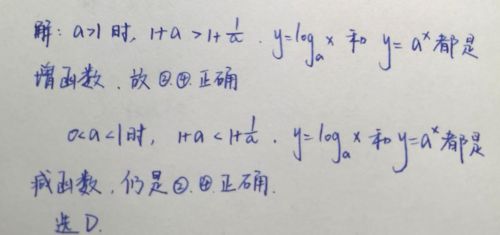 解: a>1 时, 1+a>1+1/a. y=logₐx 和 y=aˣ 都是
增函数. 故②.④.正确
0<a<1时, 1+a<1+1/a. y=logₐx 和 y=aˣ都是
减函数. 仍是②.④.正确.
选D.